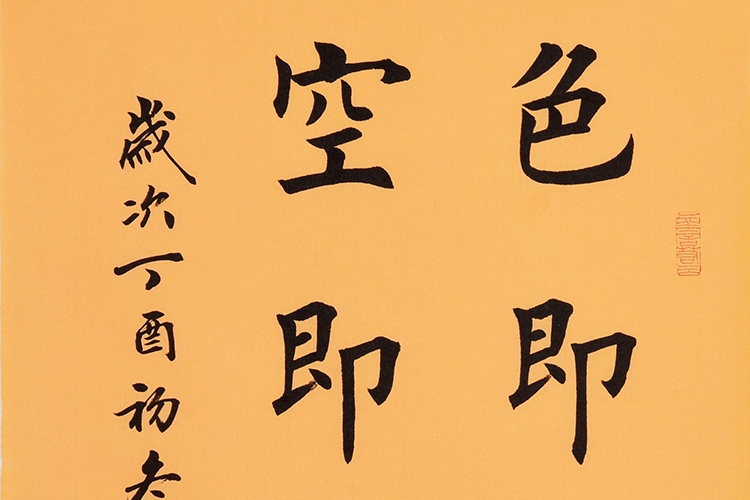 色即
空即
歲次丁酉初